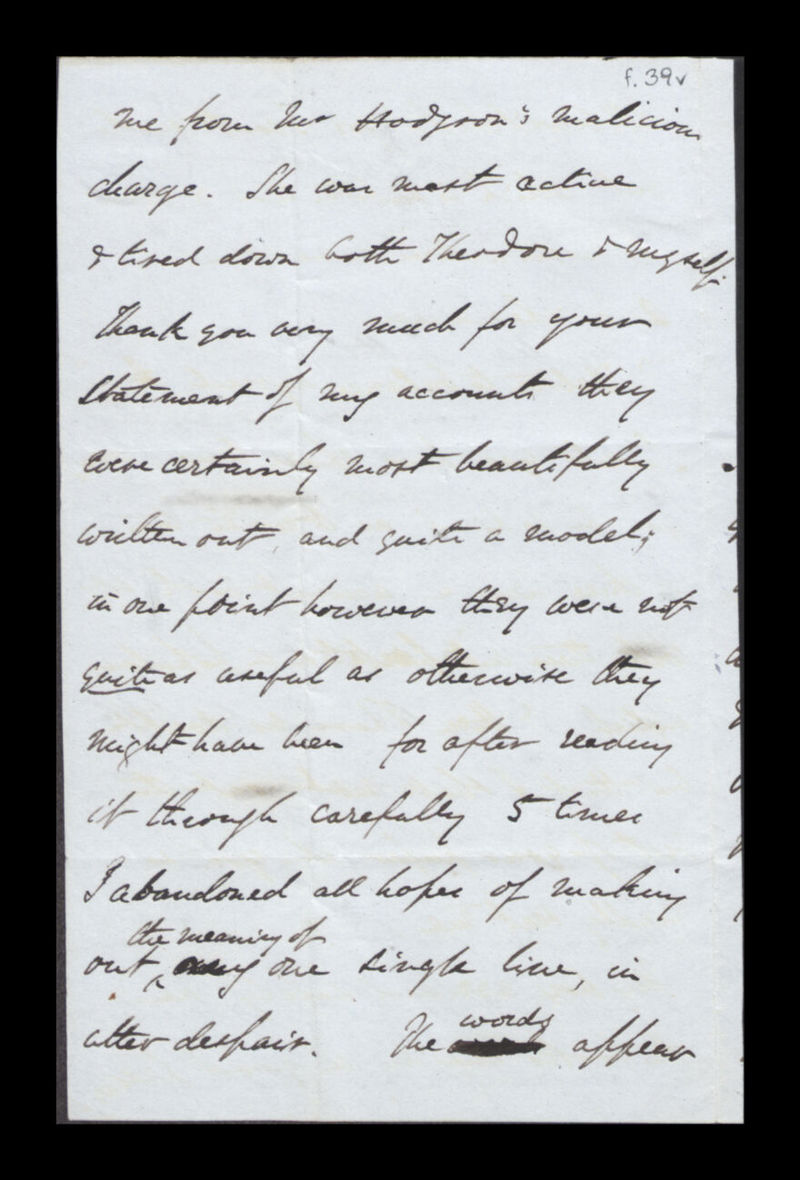 f. 39v
me from Mr Hodgson's malicious
charge. She was most active
& tired down both Theodore & myself.
Thank you very much for your
statement of my accounts they
were certainly most beautifully
written out, and quite a model;
in one point however they were not
quite as useful as otherwise they
might have been for after reading
it through carefully 5 times
I abandoned all hopes of making
the meaning of
out any one single line, in
utter despair. The words appear